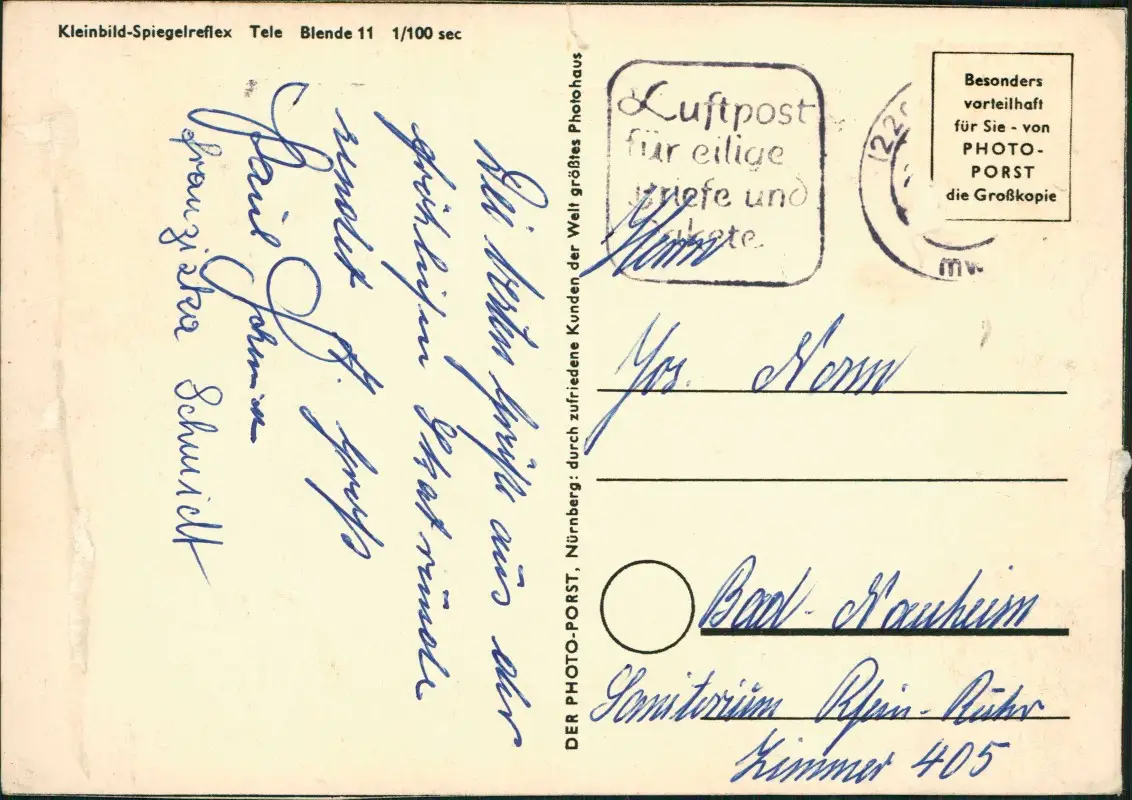 Kleinbild-Spiegelreflex Tele Blende 11 1/100 sec
Die besten Grüße aus der
fröhlichen Skatrunde
sendet
Schmidt
Franziska Schmidt
DER PHOTO-PORST, Nürnberg: durch zufriedene Kunden der Welt größtes Photohaus
Luftpost
für eilige
Briefe und
Pakete
(22
Besonders
vorteilhaft
für Sie - von
PHOTO-
PORST
die Großkopie
Herrn
Jos. Norm
Bad-Nauheim
Sanitorium Rhein-Ruhr
Zimmer 405